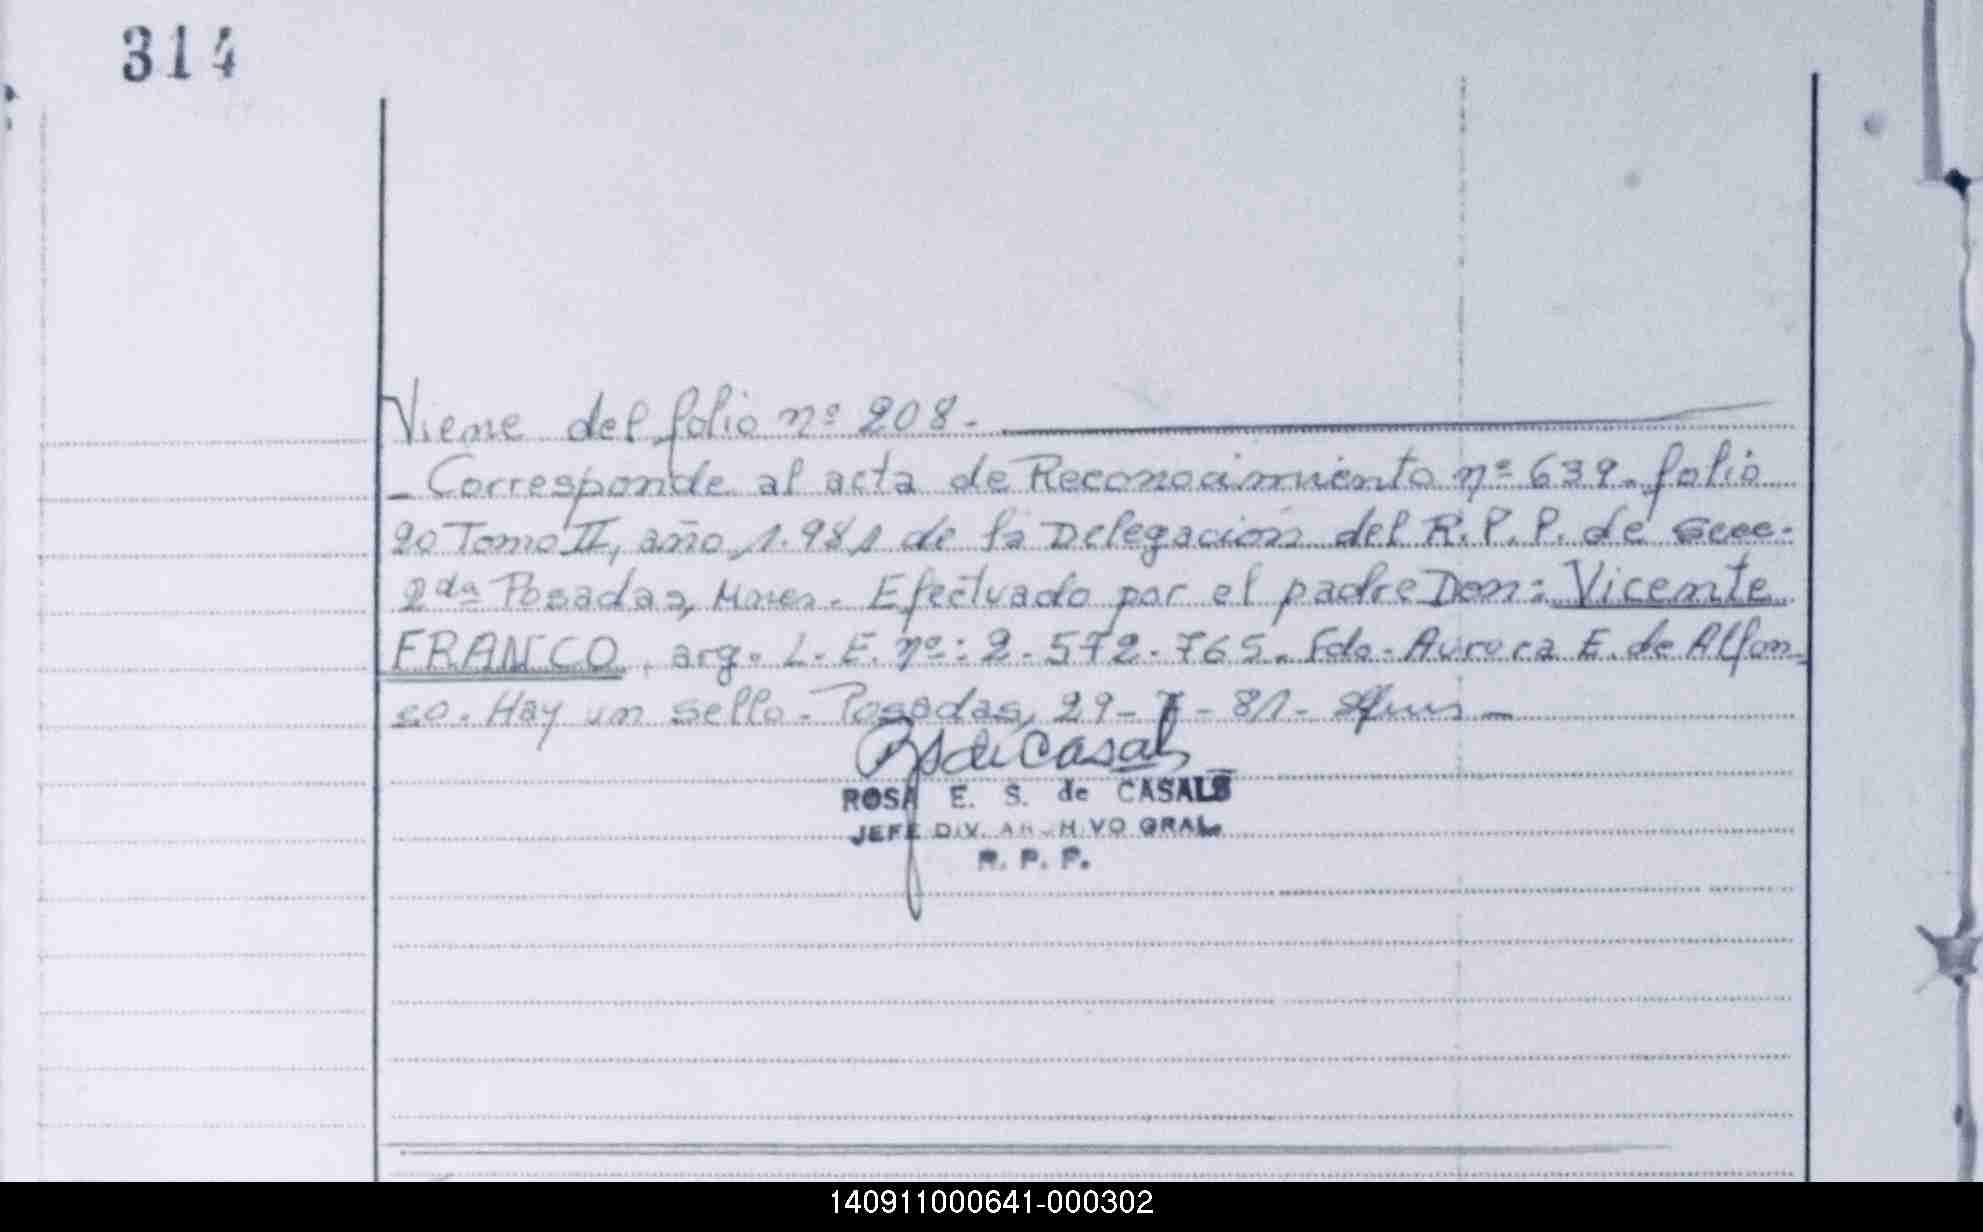 314
Viene del folio nº 208.-
- Corresponde al acta de Reconocimiento nº 639- folio
20 Tomo II, año 1.981 de la Delegación del R.P.P. de Secc.
2da Posadas, Mnes.- Efectuado por el padre Don: Vicente
FRANCO, arg. L.E. nº: 2.572.765.- Fdo. Aurora E. de Alfon-
so. Hay un sello.- Posadas, 29-7-81-
RS de Casals
ROSA E. S. de CASALS
JEFE DIV. ARCHIVO GRAL.
R. P. P.
140911000641-000302